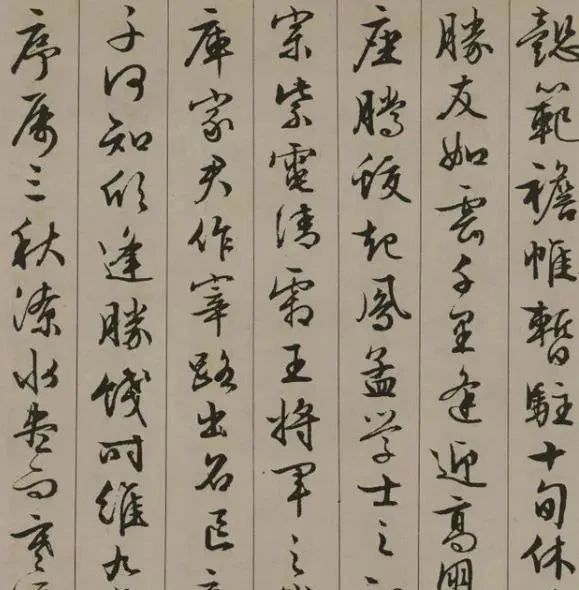 懿範襜帷暫駐十旬休
勝友如雲千里逢迎高朋
座騰蛟起鳳孟学士之
宗紫電清霜王將軍之
庫家君作宰路出名區
子何知欣逢勝餞时維九
序属三秋潦水盡而寒